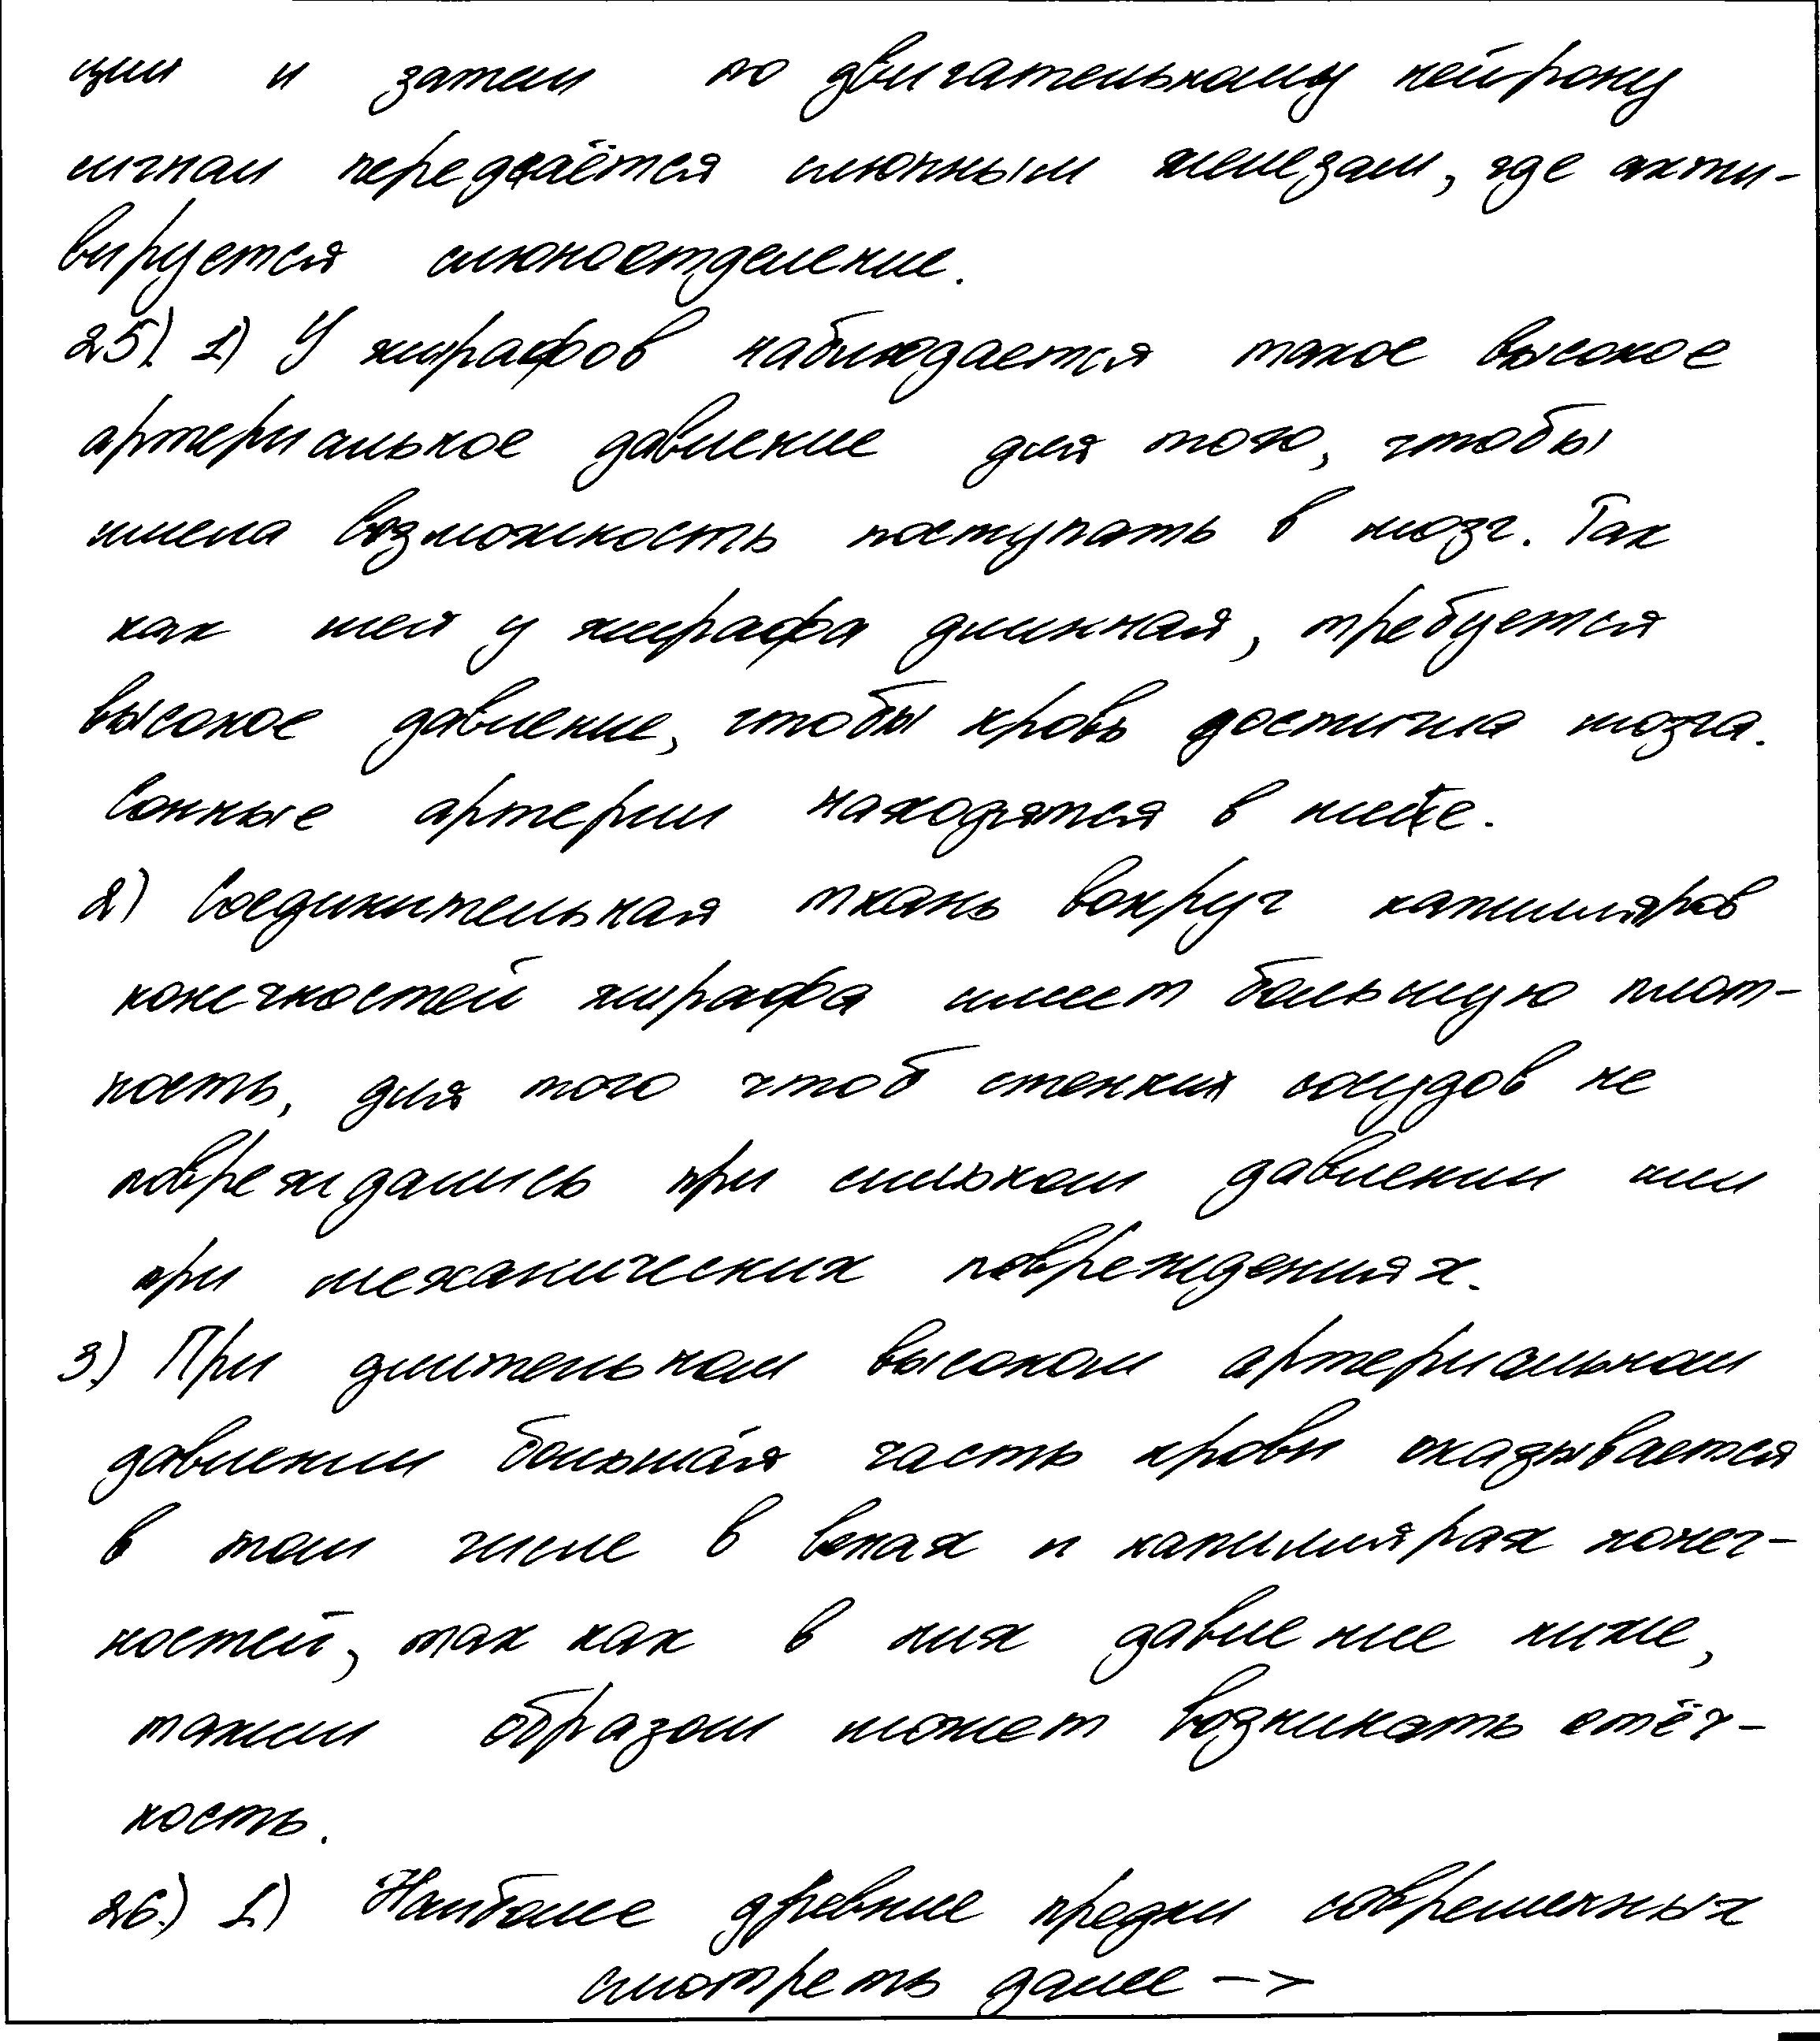 ции и затем по двигательному нейрону
сигнал передаётся слюнным железам, где акти-
вируется слюноотделение.
25). 1) У жирафов наблюдается такое высокое
артериальное давление для того, чтобы
имела возможность поступать в мозг. Так
как шея у жирафа длинная, требуется
высокое давление, чтобы кровь достигла мозга.
Сонные артерии находятся в шее.
2) Соединительная ткань вокруг капилляров
конечностей жирафа имеет большую плот-
ность, для того чтоб стенки сосудов не
повреждались при сильном давлении или
при механических повреждениях.
3.) При длительном высоком артериальном
давлении большая часть крови оказывается
в том числе в венах и капиллярах конеч-
ностей, так как в них давление ниже,
таким образом может возникать отёч-
ность.
26.) 1) Наиболее древние предки современных
смотреть далее ->